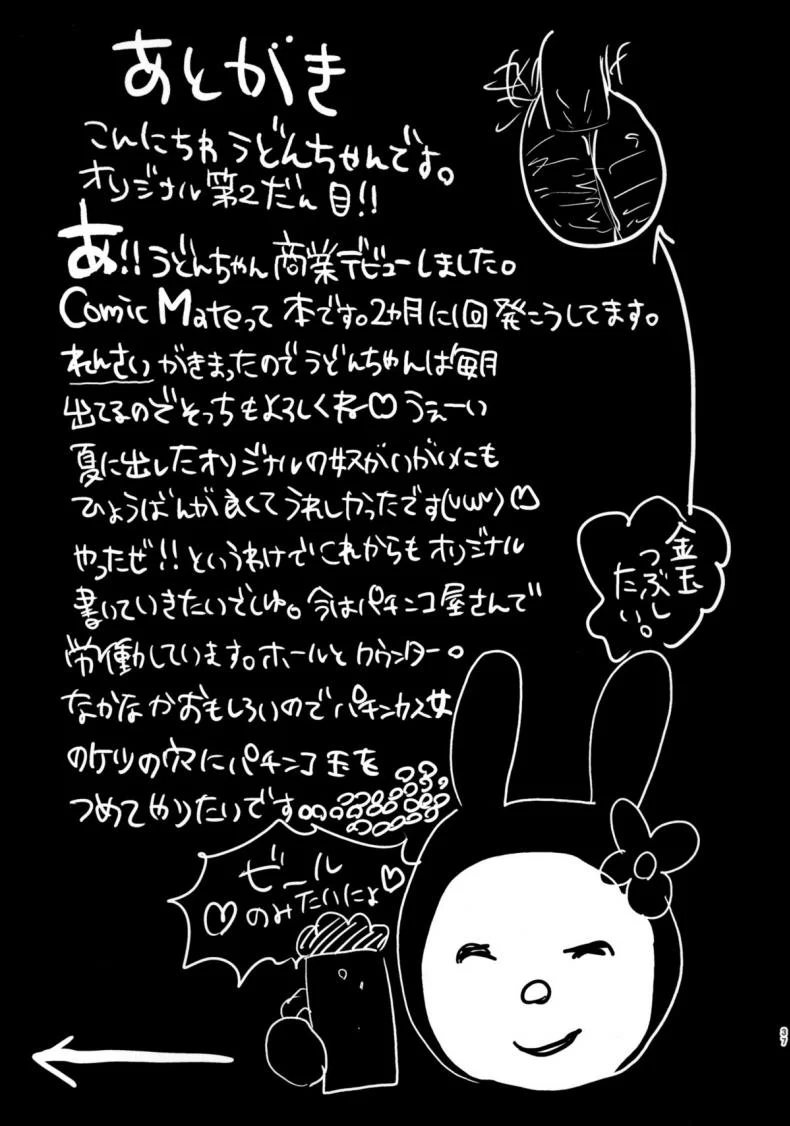 あとがき
こんにちわ うどんちゃんです。
オリジナル第2だん目!!
あ!! うどんちゃん商業デビューしました。
Comic Mateって本です。2カ月に1回発こうしてます。
れんさいがきまったのでうどんちゃんは毎月
出てるのでそっちもよろしくね♡ うぇーい
夏に出したオリジナルの奴がいがいにも
ひょうばんが良くてうれしかったです(UωU)♡
やったぜ!! というわけでこれからもオリジナル
書いていきたいでしゅ。今はパチンコ屋さんで
労働しています。ホールとカウンター。
なかなかおもしろいのでパチンカス女
のケツの穴にパチンコ玉を
つめてやりたいです
金玉
つぶし
たい。
ビール
♡のみたいにょ♡
37